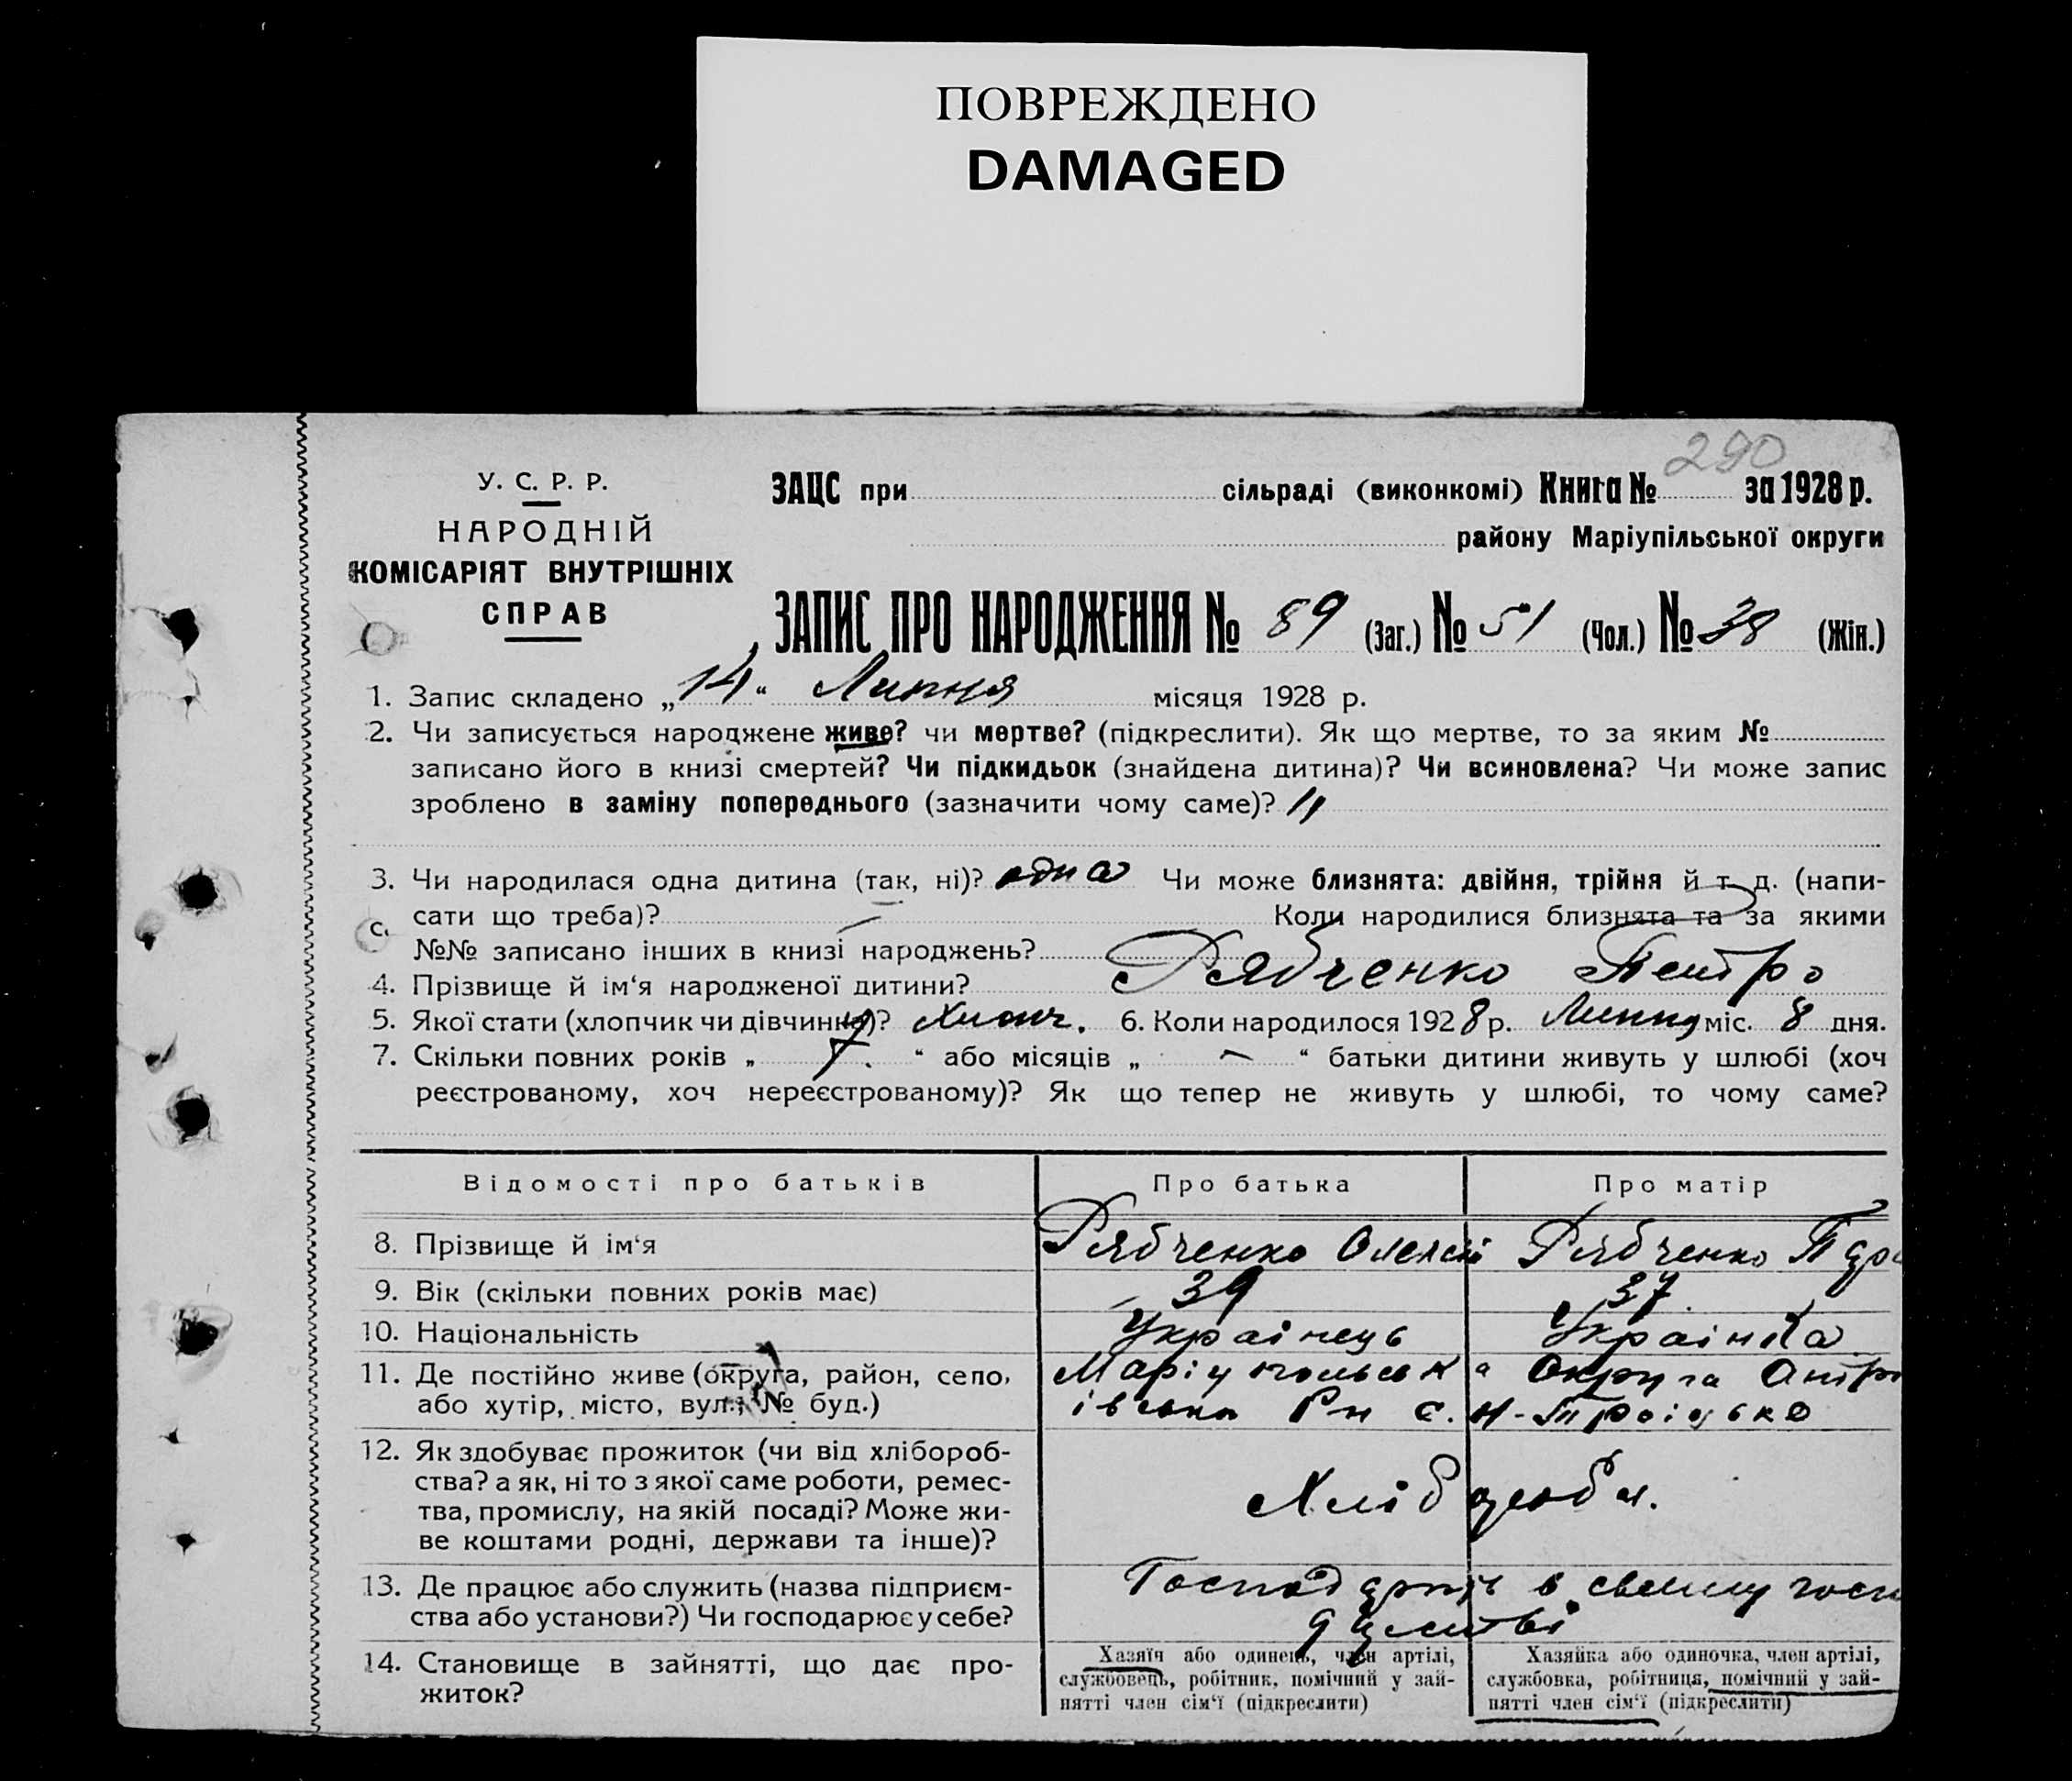 ПОВРЕЖДЕНО
DAMAGED
290
У. С. Р. Р.
НАРОДНІЙ
КОМІСАРІЯТ ВНУТРІШНІХ
СПРАВ
ЗАЦС при сільраді (виконкомі) Книга № за 1928 р.
району Маріупільської округи
ЗАПИС ПРО НАРОДЖЕННЯ № 89 (Заг.) № 51 (Чол.) № 38 (Жін.)
1. Запис складено „14“ Липня місяця 1928 р.
2. Чи записується народжене живе? чи мертве? (підкреслити). Як що мертве, то за яким №
записано його в книзі смертей? Чи підкидьок (знайдена дитина)? Чи всиновлена? Чи може запис
зроблено в заміну попереднього (зазначити чому саме)? //
3. Чи народилася одна дитина (так, ні)? одна Чи може близнята: двійня, трійня й т. д. (напи-
сати що треба)? — Коли народилися близнята та за якими
№№ записано інших в книзі народжень?
4. Прізвище й ім‘я народженої дитини? Рябченко Петро
5. Якої статі (хлопчик чи дівчинка)? Хлопч. 6. Коли народилося 1928 р. Липня міс. 8 дня.
7. Скільки повних років „ 7. “ або місяців „ — “ батьки дитини живуть у шлюбі (хоч
реєстрованому, хоч нереєстрованому)? Як що тепер не живуть у шлюбі, то чому саме?
Відомості про батьків Про батька Про матір
8. Прізвище й ім‘я Рябченко Олексій Рябченко
9. Вік (скільки повних років має) 39 37
10. Національність Українець Українка
11. Де постійно живе (округа, район, село, Маріупольська Округа
або хутір, місто, вул., № буд.) івська Рн с. Н-Троїцько
12. Як здобуває прожиток (чи від хлібороб-
ства? а як, ні то з якої саме роботи, ремес-
тва, промислу, на якій посаді? Може жи-
ве коштами родні, держави та інше)?
13. Де працює або служить (назва підприєм- в своєму
ства або установи?) Чи господарює у себе?
14. Становище в зайнятті, що дає про-
житок?
Хазяїн або одинець, член артілі,
службовець, робітник, помічний у зай-
нятті член сім‘ї (підкреслити)
Хазяйка або одиночка, член артілі,
службовка, робітниця, помічний у зай-
нятті член сім‘ї (підкреслити)